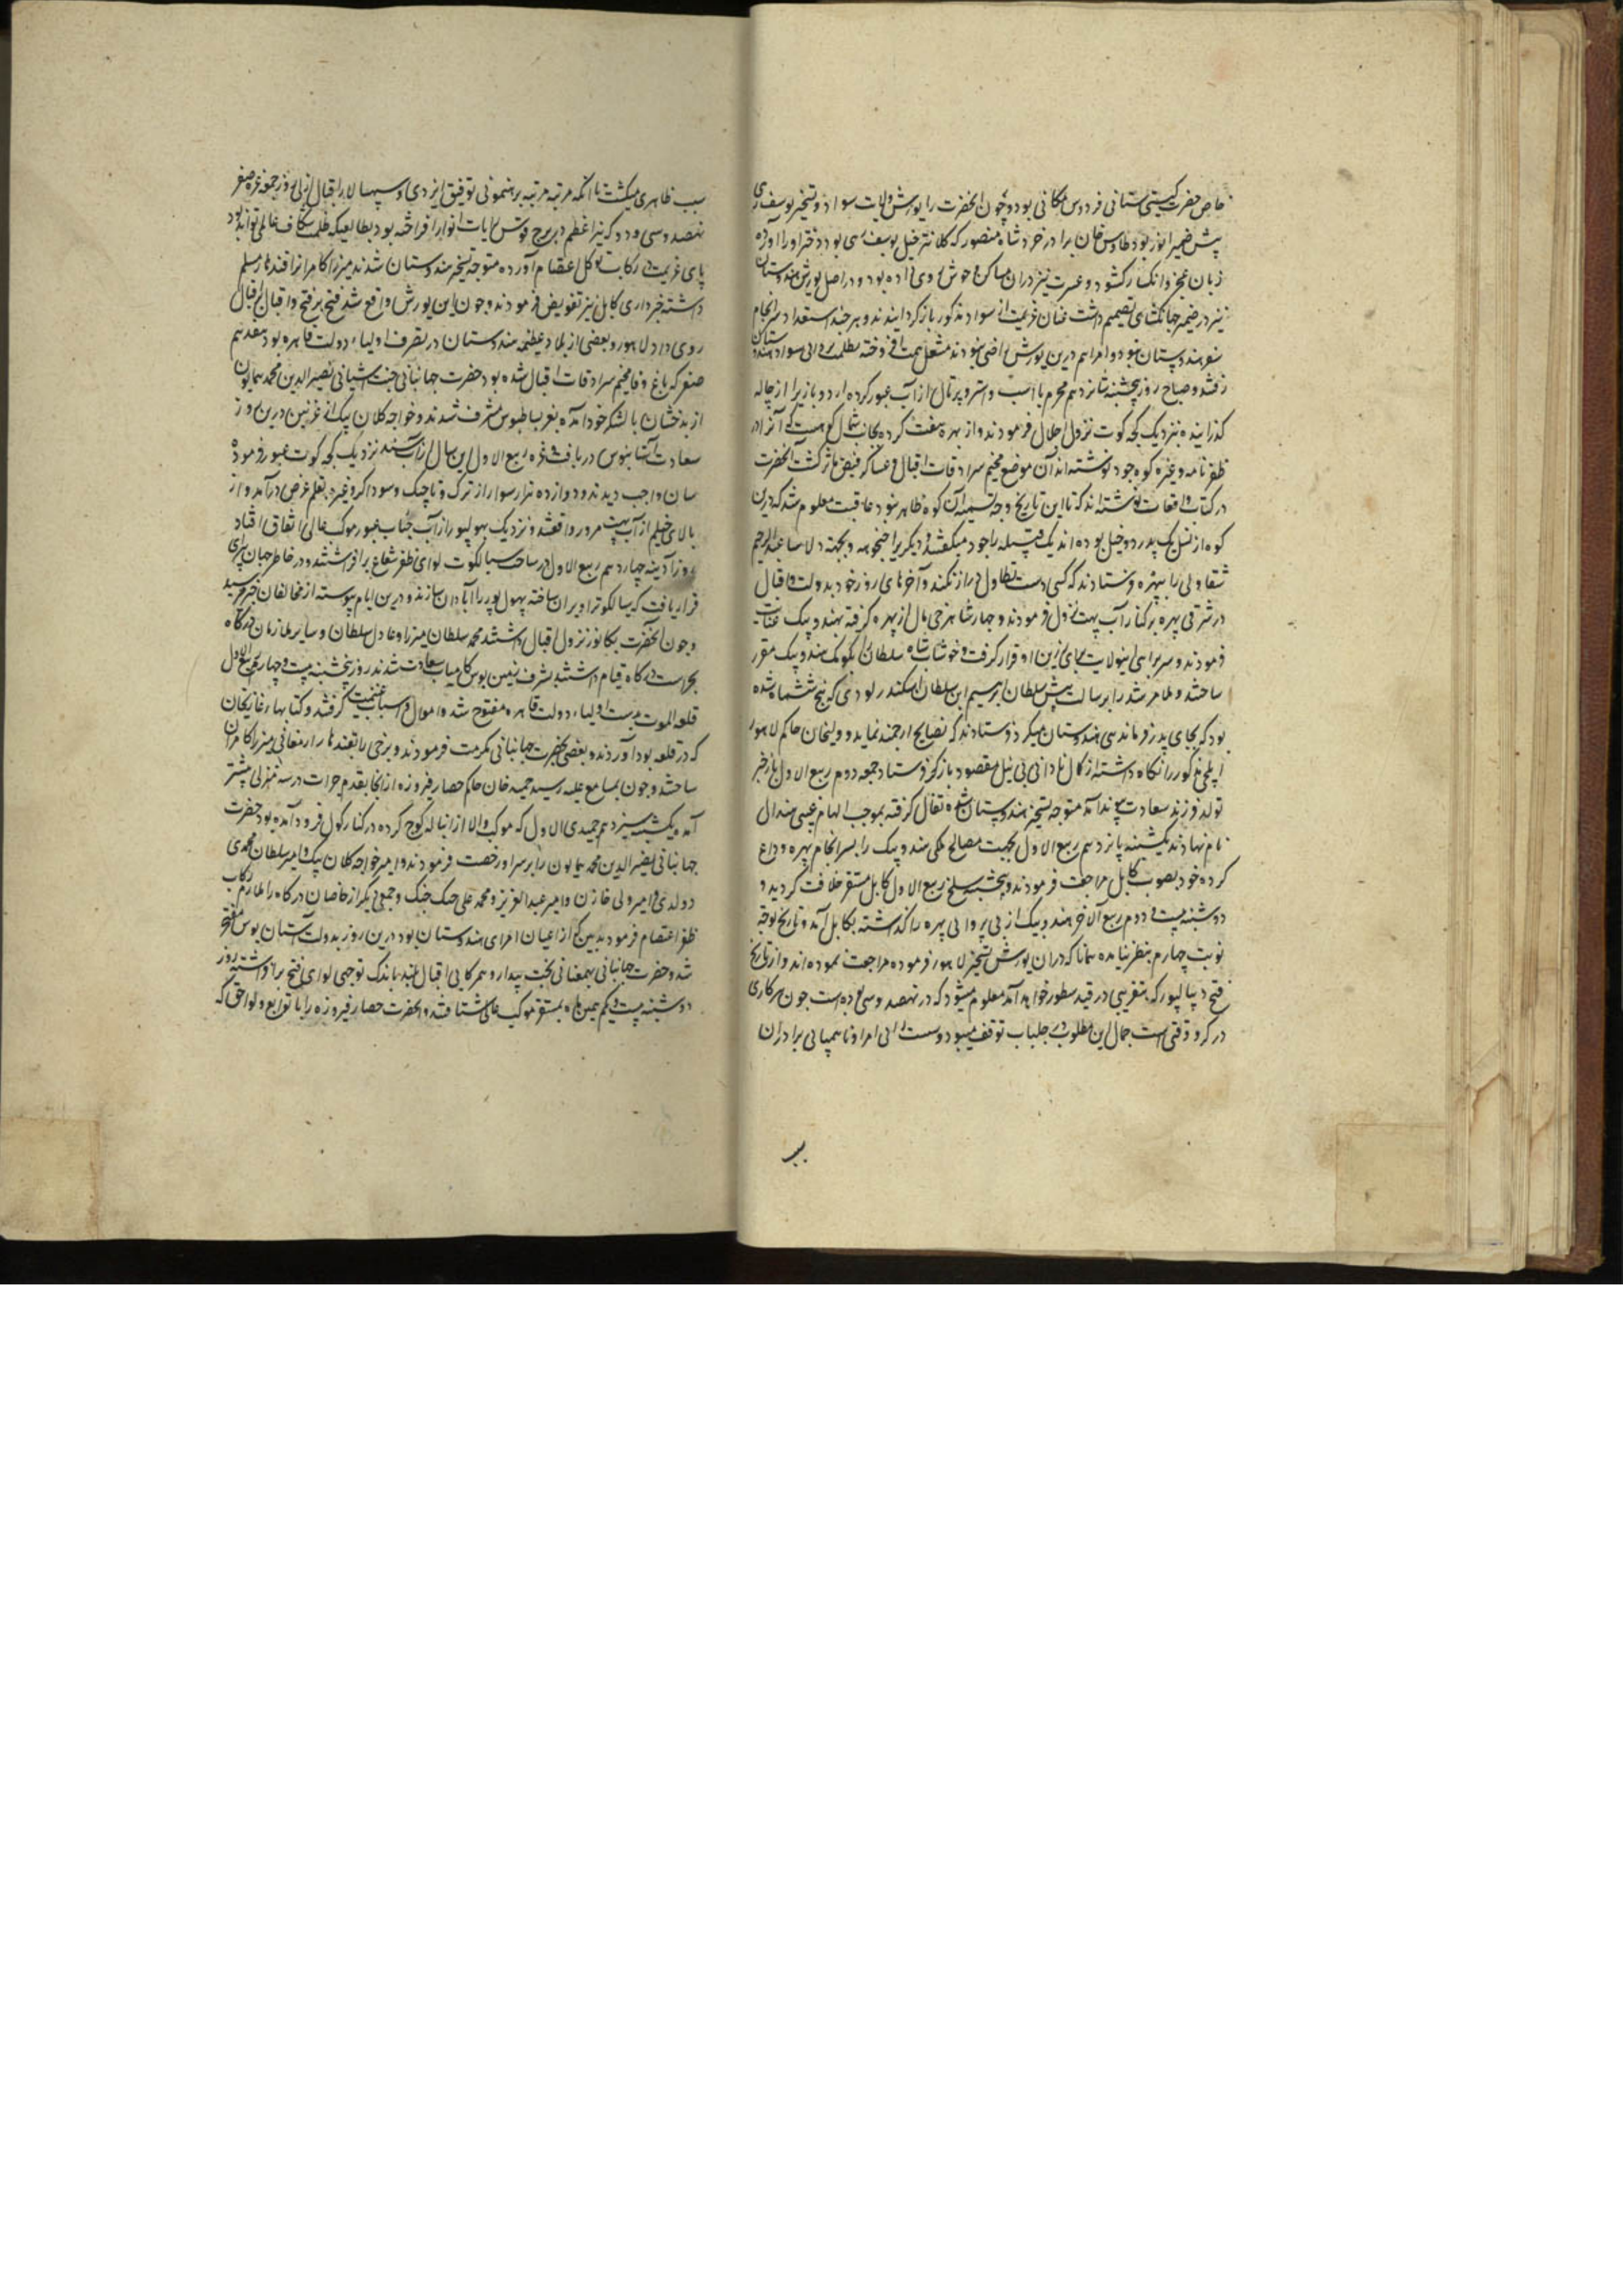 خاص حضرت گیتی ستانی فردوس مکانی بود و چون آنحضرت را یورش ولایت سواد و تسخیر یوسف زی
پیش ضمیر انور بود طاوس خان برادر خرد شاه منصور که کلانتر خیل یوسف زی بود دختر او را آورده
زبان عجز و انکسار گشود و عسرت نیز دران مساکن وحوش روی داده بود و در اصل یورش هندوستان
نیز در ضمیر جهانگشای تصمیم داشت عنان عزیمت از سواد مذکور باز گردانیدند و هر چند استعداد سرانجام
سفر هندوستان نبود و امرا هم درین یورش راضی نبودند مشعل همت افروخته بظلمت زدایی سواد هندوستان
رفتند و صباح روز پنجشنبه شانزدهم محرم با اسب و اشتر و پرتال از آب عبور کرده اردو بازار را از جاله
گذرانیده نزدیک کجه کوت نزول اجلال فرمودند و از بهره هفت کرده بجانب شمال کوهیست که آنرا در
ظفرنامه و غیره کوه جود نوشته‌اند آن موضع مخیم سرادقات اقبال و عساکر فیض مآثر گشت آنحضرت
در کتاب واقعات نوشته‌اند که تا این تاریخ وجه تسمیه آن کوه ظاهر نبود عاقبت معلوم شد که درین
کوه از نسل یک پدر دو خیل بوده‌اند یک قبیله را جود میگفتند و دیگریرا جنجوهه و بجهت دلاسا عبدالرحیم
شقاولی را ببهره فرستادند که کسی دست تطاول دراز نکند و آخرهای روز خود بدولت و اقبال
در شرقی بهره بر کنار آب بهت نزول فرمودند و چهار شاهرخی مال از بهره گرفته بهندو بیک عنایت
فرمودند و سربراهی اینولایت برای زرین او قرار گرفت و خوشاب شاه سلطان بکومک هندو بیک مقرر
ساختند و ملا مرشد را برسالت پیش سلطان ابراهیم ابن سلطان اسکندر لودی که پنج ششماه شده
بود که بجای پدر فرماندهی هندوستان میکرد فرستادند که نصایح ارجمند نماید و دولتخان حاکم لاهور
ایلچی مذکور را نگاه داشته از کمال نادانی بی نیل مقصود باز گرد فرستاد جمعه دوم ربیع الاول باز خبر
تولد فرزند سعادت پیوند آمد متوجه تسخیر هندوستان شده تفال گرفته بموجب الهام غیبی هندال
نام نهادند یکشنبه پانزدهم ربیع الاول بجهت مصالح ملکی هندو بیک را بسرانجام بهره وداع
کرده خود بصوب کابل مراجعت فرمودند و پنجشنبه سلخ ربیع الاول کابل مستقر خلافت گردید و
دوشنبه بیست و دوم ربیع الآخر هندو بیک از بی پروایی بهره را گذاشته بکابل آمد و تاریخ توجه
نوبت چهارم بنظر نیامده همانا که دران یورش تسخیر لاهور فرموده مراجعت نموده‌اند و از تاریخ
فتح دیپالپور که بتقریبی در قید سطور خواهد آمد معلوم میشود که در نهصد و سی بوده است چون هر کاری
در گرو وقتی است جمال این مطلوب در جلباب توقف میبود و سست رایی امرا و ناهمپایی برادران
سبب
سبب ظاهری میگشت تا آنکه مرتبه مرتبه برهنمونی توفیق ایزدی و سپهسالاری اقبال ازلی روز جمعه غره صفر
نهصد و سی و دو که نیر اعظم در برج قوس رایات انوار افراخته بود بطالعیکه ظلمت شکاف عالمی تواند بود
پای عزیمت در رکاب توکل و اعتصام آورده متوجه تسخیر هندوستان شدند میرزا کامران را قندهار مسلم
داشته خبرداری کابل نیز تفویض فرمودند و چون این یورش واقع شد فتح بر فتح و اقبال بر اقبال
روی داد لاهور و بعضی از بلاد عظیمه هندوستان در تصرف اولیاء دولت قاهره بود هفدهم
صفر که باغ وفا مخیم سرادقات اقبال شده بود حضرت جهانبانی جنت آشیانی نصیرالدین محمد همایون
از بدخشان با لشکر خود آمده بعز بساط بوس مشرف شدند و خواجه کلان بیک از غزنین درین روز
سعادت آستانبوس دریافت و غره ربیع الاول این سال از آب سند نزدیک کجه کوت عبور فرموده
سان واجب دیدند و دوازده هزار سوار از ترک و تاجیک و سوداگر و غیره بقلم عرض درآمد و از
بالای جیلم از آب بهت مرور واقع شد و نزدیک بهلولپور از آب چناب عبور موکب عالی اتفاق افتاد
روز آدینه چهاردهم ربیع الاول در ساحت سیالکوت لوای ظفر شعاع برافراشتند و در خاطر جهان آرای
قرار یافت که سیالکوت را ویران ساخته بهلولپور را آبادان سازند و درین ایام پیوسته از مخالفان خبر میرسید
و چون آنحضرت بکلانور نزول اقبال داشتند محمد سلطان میرزا و عادل سلطان و سایر ملازمان که در لاهور
بحراست درگاه قیام داشتند بشرف زمین بوس کامیاب سعادت شدند روز پنجشنبه بیست و چهارم ربیع الاول
قلعه ملوت بدست اولیاء دولت قاهره مفتوح شد و اموال و اسباب غنیمت گرفتند و کتابهاء غازیخان
که در قلعه بود آوردند و بعضی بحضرت جهانبانی مکرمت فرمودند و برخی را بقندهار ارمغانی میرزا کامران
ساختند و چون بمسامع علیه رسید حمید خان حاکم حصار فیروزه از آنجا بقدم جرات دو سه منزلی پیشتر
آمد یکشنبه سیزدهم جمیدی الاول که موکب والا از انباله کوچ کرده در کنار کول فرود آمده بود حضرت
جهانبانی نصیرالدین محمد همایون را بر سر او رخصت فرمودند و امیر خواجه کلان بیک و امیر سلطان محمد
دولدی و امیر ولی خازن و امیر عبدالعزیز و محمد علی جنگ جنگ و جمعی دیگر از خاصان درگاه را ملازم رکاب
ظفر اعتصام فرمود ببین که از اعیان امرای هندوستان بود درین روز بدولت آستان بوس مفتخر
شد و حضرت جهانبانی بهمعنانی بخت بیدار و همرکابی اقبال بلند باندک توجهی لوای فتح برافراشته روز
دوشنبه بیست و یکم همین ماه بمستقر موکب عالی شتافتند و آنحضرت حصار فیروزه را با توابع و لواحق که